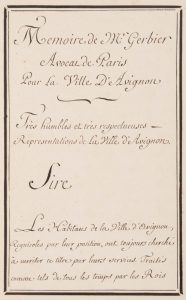 Memoire de Mr. Gerbier
Avocat de Paris
Pour la Ville D'Avignon
Très humbles et très respectueuses
Représentations de la Ville d'Avignon.
Sire
Les Habitans de la Ville d'Avignon,
Regnicoles par leur position, ont toujours cherché
à meriter ce titre par leurs services. Traités
comme tels de tous les temps par les Rois